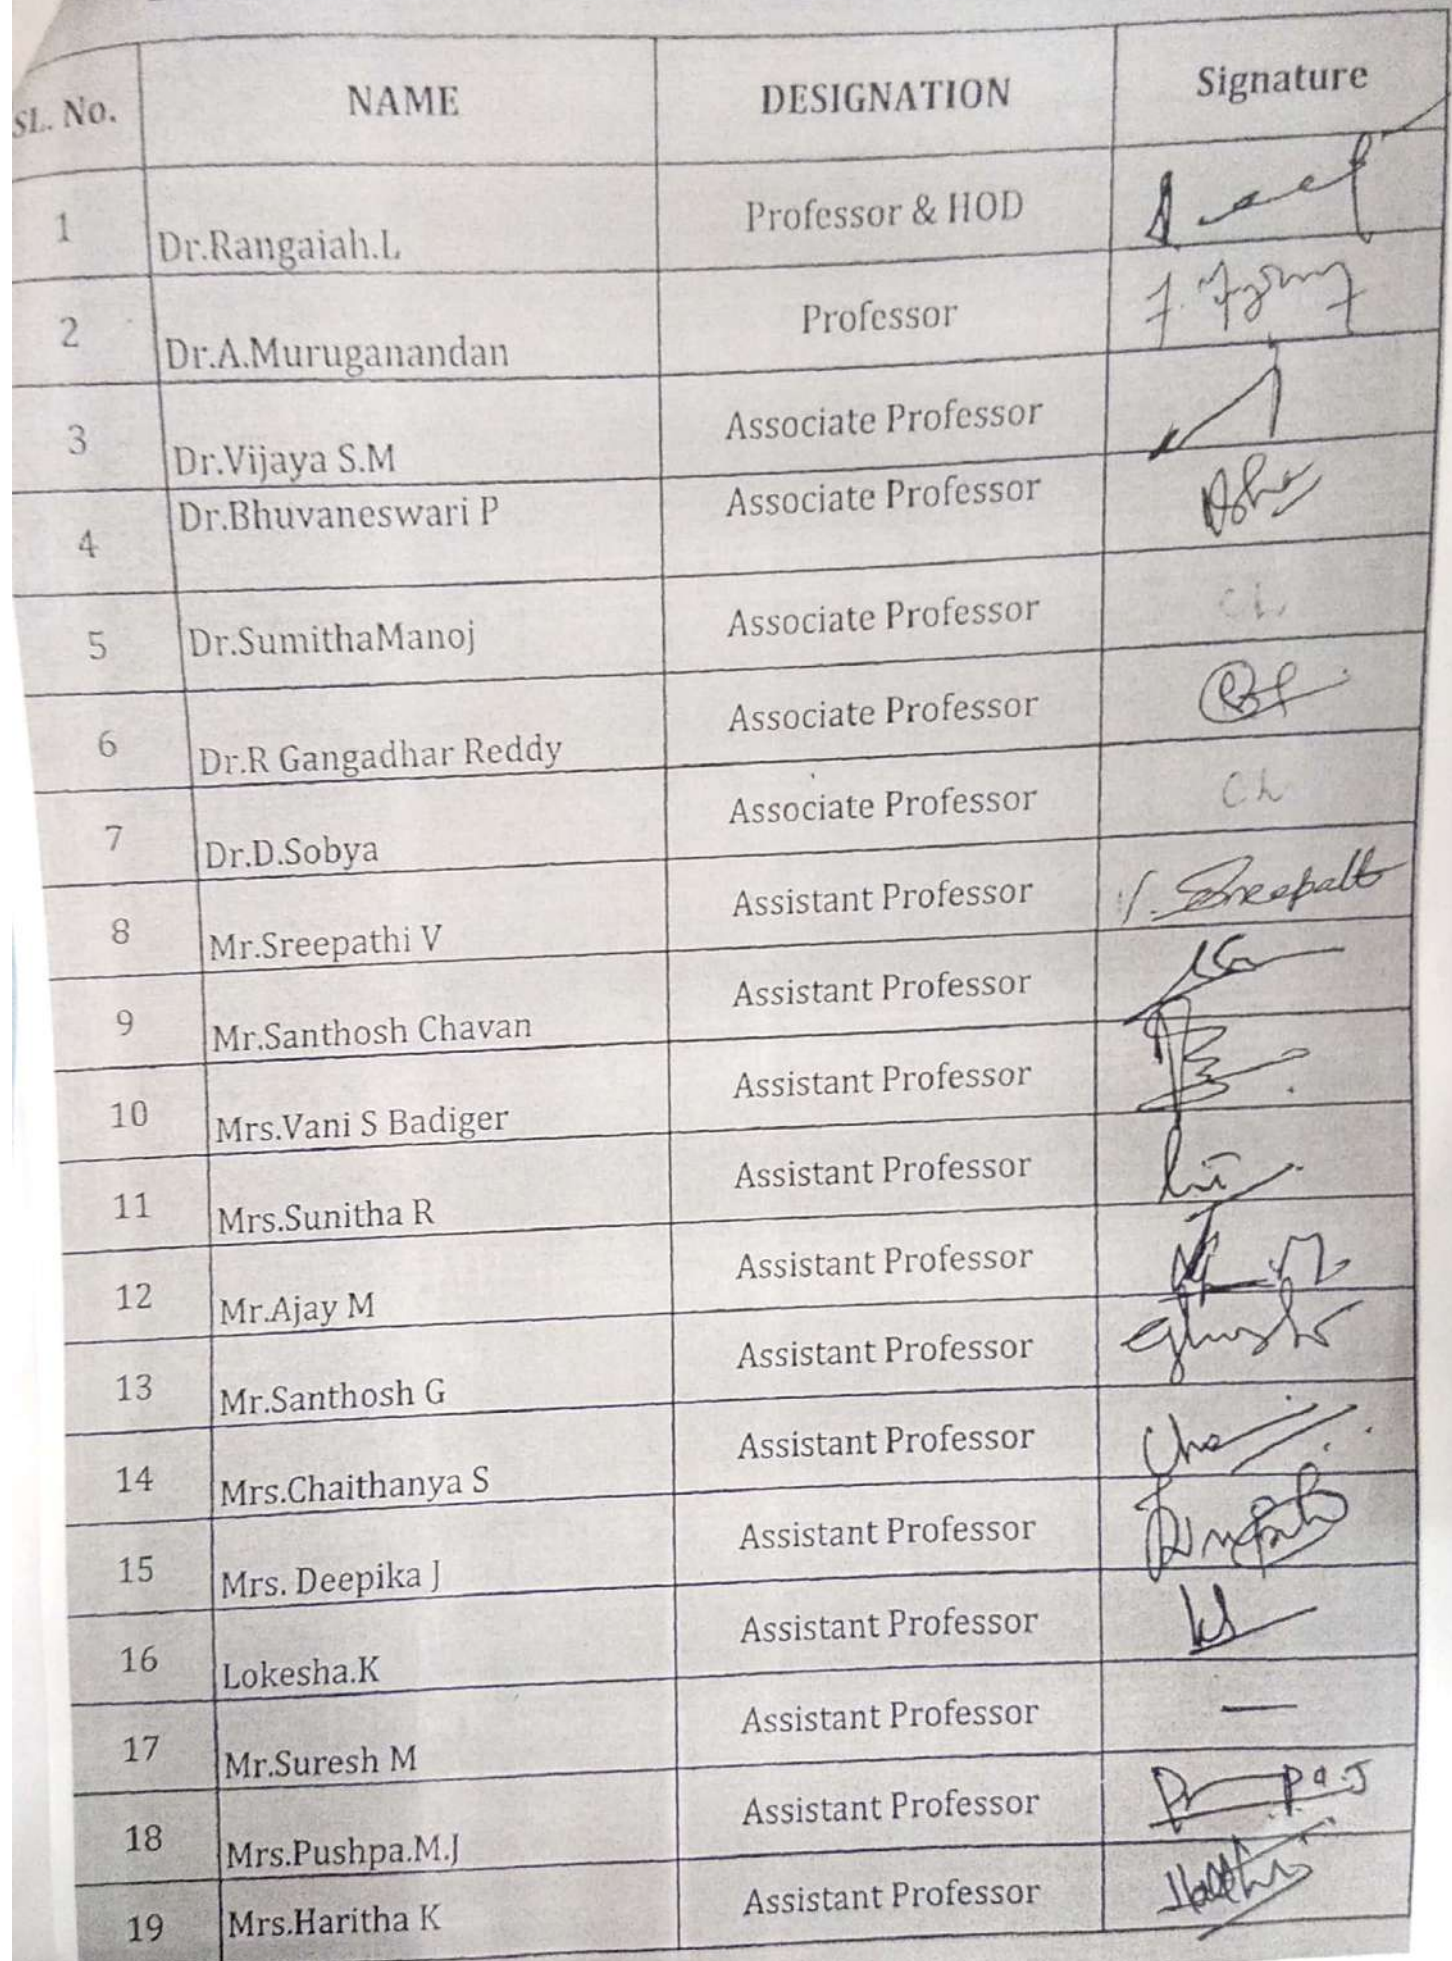 SL. No. NAME DESIGNATION Signature
1 Dr.Rangaiah.L Professor & HOD
2 Dr.A.Muruganandan Professor
3 Dr.Vijaya S.M Associate Professor
4 Dr.Bhuvaneswari P Associate Professor
5 Dr.SumithaManoj Associate Professor CL
6 Dr.R Gangadhar Reddy Associate Professor
7 Dr.D.Sobya Associate Professor CL
8 Mr.Sreepathi V Assistant Professor
9 Mr.Santhosh Chavan Assistant Professor
10 Mrs.Vani S Badiger Assistant Professor
11 Mrs.Sunitha R Assistant Professor
12 Mr.Ajay M Assistant Professor
13 Mr.Santhosh G Assistant Professor
14 Mrs.Chaithanya S Assistant Professor
15 Mrs. Deepika J Assistant Professor
16 Lokesha.K Assistant Professor
17 Mr.Suresh M Assistant Professor —
18 Mrs.Pushpa.M.J Assistant Professor
19 Mrs.Haritha K Assistant Professor